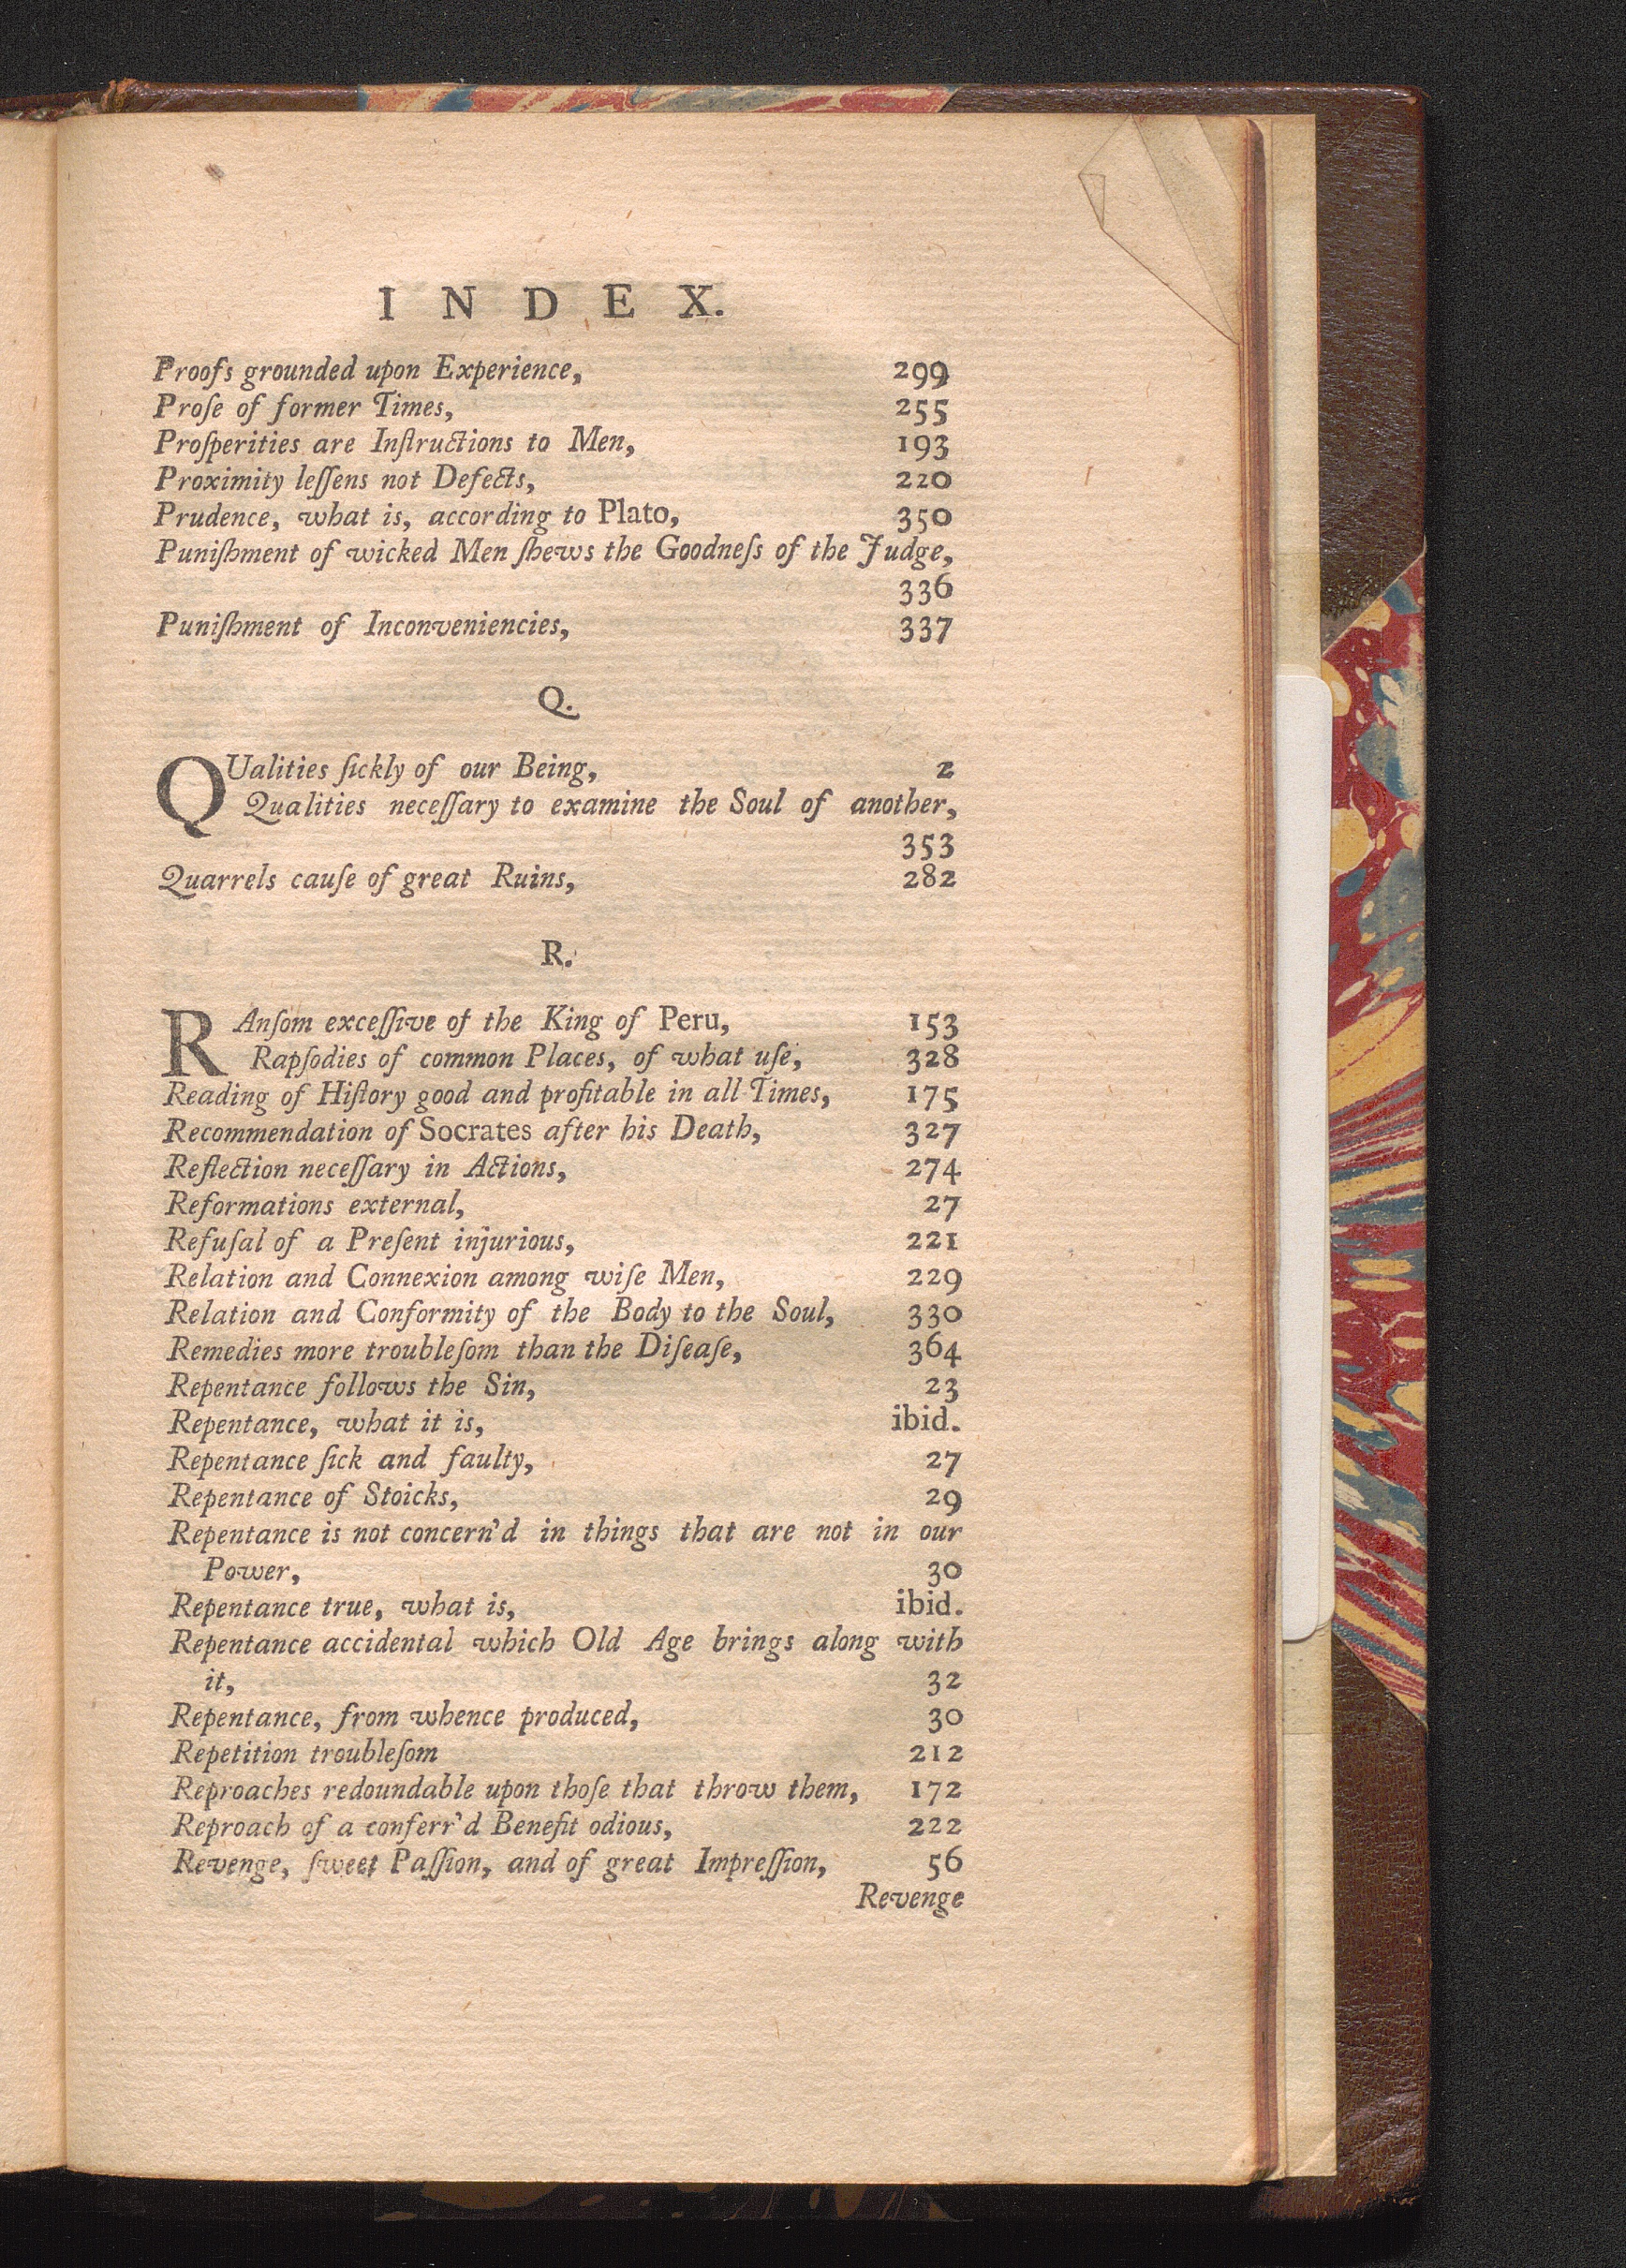 INDEX.
Proofs grounded upon Experience, 299
Proſe of former Times, 255
Proſperities are Inſtructions to Men, 193
Proximity leſſens not Defects, 220
Prudence, what is, according to Plato, 350
Puniſhment of wicked Men ſhews the Goodneſs of the Judge,
336
Puniſhment of Inconveniencies, 337
Q.
QUalities ſickly of our Being, 2
Qualities neceſſary to examine the Soul of another,
353
Quarrels cauſe of great Ruins, 282
R.
RAnſom exceſſive of the King of Peru, 153
Rapſodies of common Places, of what uſe, 328
Reading of Hiſtory good and profitable in all Times, 175
Recommendation of Socrates after his Death, 327
Reflection neceſſary in Actions, 274
Reformations external, 27
Refuſal of a Preſent injurious, 221
Relation and Connexion among wiſe Men, 229
Relation and Conformity of the Body to the Soul, 330
Remedies more troubleſom than the Diſeaſe, 364
Repentance follows the Sin, 23
Repentance, what it is, ibid.
Repentance ſick and faulty, 27
Repentance of Stoicks, 29
Repentance is not concern'd in things that are not in our
Power, 30
Repentance true, what is, ibid.
Repentance accidental which Old Age brings along with
it, 32
Repentance, from whence produced, 30
Repetition troubleſom 212
Reproaches redoundable upon thoſe that throw them, 172
Reproach of a conferr'd Benefit odious, 222
Revenge, ſweet Paſſion, and of great Impreſſion, 56
Revenge